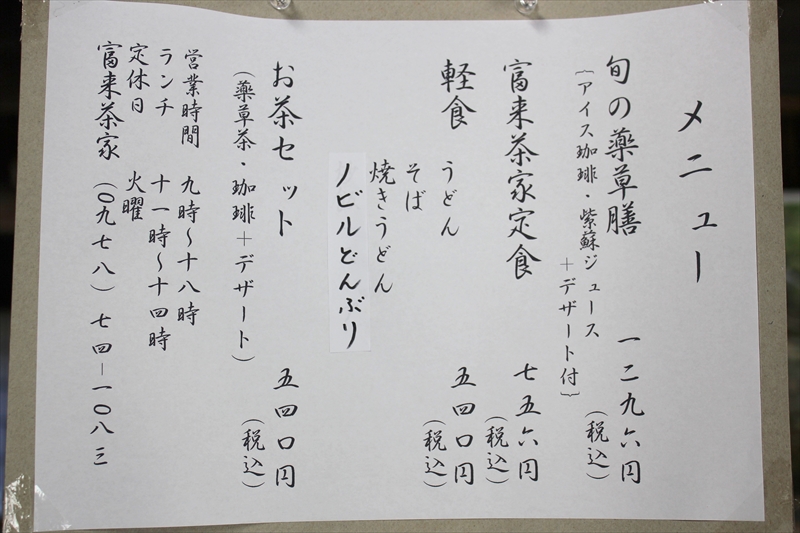 メニュー
旬の薬草膳 一二九六円
〔アイス珈琲・紫蘇ジュース
+デザート付〕 （税込）
富来茶家定食 七五六円
（税込）
軽食 うどん 五四〇円
そば （税込）
焼きうどん
ノビルどんぶり
お茶セット 五四〇円
（薬草茶・珈琲+デザート） （税込）
営業時間 九時～十八時
ランチ 十一時～十四時
定休日 火曜
富来茶家 （〇九七八）七四－一〇八三